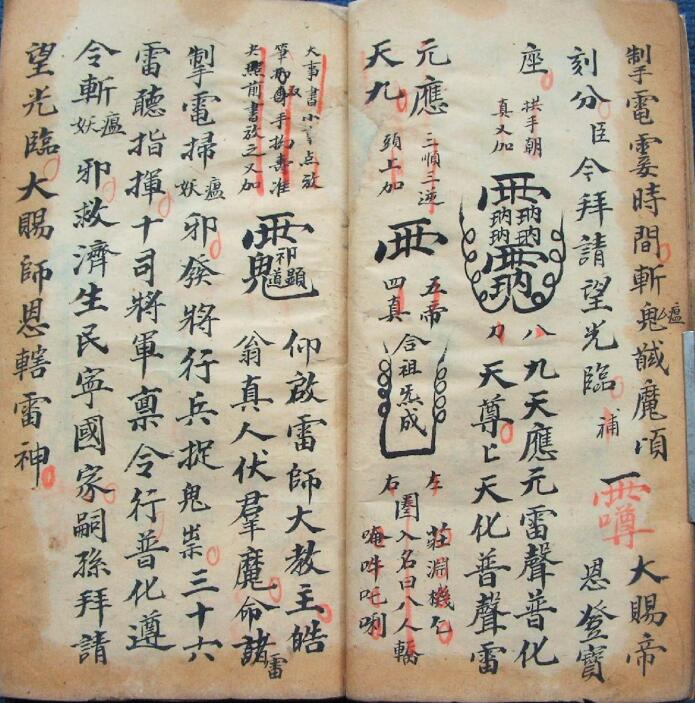 掣電霎時間斬鬼馘魔頃
瘟
刻分臣令拜請望光臨
補
大賜帝
恩登寶
座
拱手朝
真又加
八九天應元雷聲普化
天尊
天化普聲雷
元應
三順三逆
天九
頭上加
五帝
四真
合祖炁成
左
右
莊淵機
圈入名曰八人
唵吽吒唎
大事書小
点放
夫照前書放之又加
仰啟雷師大教主皓
翁真人伏羣魔命諸
雷
掣電掃妖瘟邪發將行兵捉鬼祟三十六
雷聽指揮十司將軍禀令行普化遵
令斬妖瘟邪救濟生民寧國家嗣孫拜請
望光臨大賜師恩轄雷神